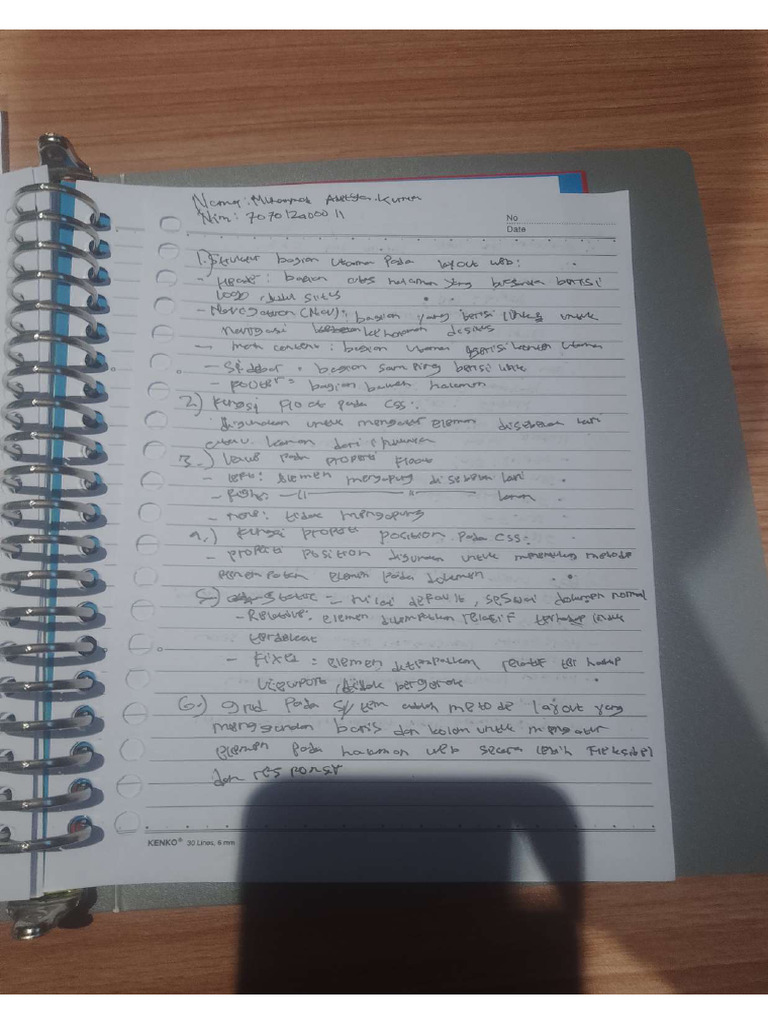 Nama: Muhammad
Nim: 70701200011
No
Date
1. Struktur bagian utama pada layout web:
- Header: bagian atas halaman yang biasanya berisi
logo, judul situs
- Navigation (Nav): bagian yang berisi links untuk
navigasi ke halaman
- main content: bagian utama berisi konten utama
- Sidebar = bagian samping berisi link
- footer = bagian bawah halaman
2.) Fungsi float pada CSS:
digunakan untuk mengatur elemen disebelah kiri
atau kanan dari
3.) pada properti float
- left: elemen mengapung disebelah kiri
- Right: —11— kanan
- none: tidak mengapung
4.) Fungsi properti position pada CSS:
- properti position digunakan untuk menentukan metode
penempatan elemen pada dokumen
5) static = nilai default, sesuai dokumen normal
- Relative: elemen ditempatkan relatif terhadap induk
terdekat
- Fixed = elemen ditempatkan relatif terhadap
viewport, tidak bergerak
6.) grid pada system adalah metode layout yang
menggunakan baris dan kolom untuk mengatur
elemen pada halaman web secara lebih fleksibel
dan responsif
KENKO® 30 Lines, 6 mm